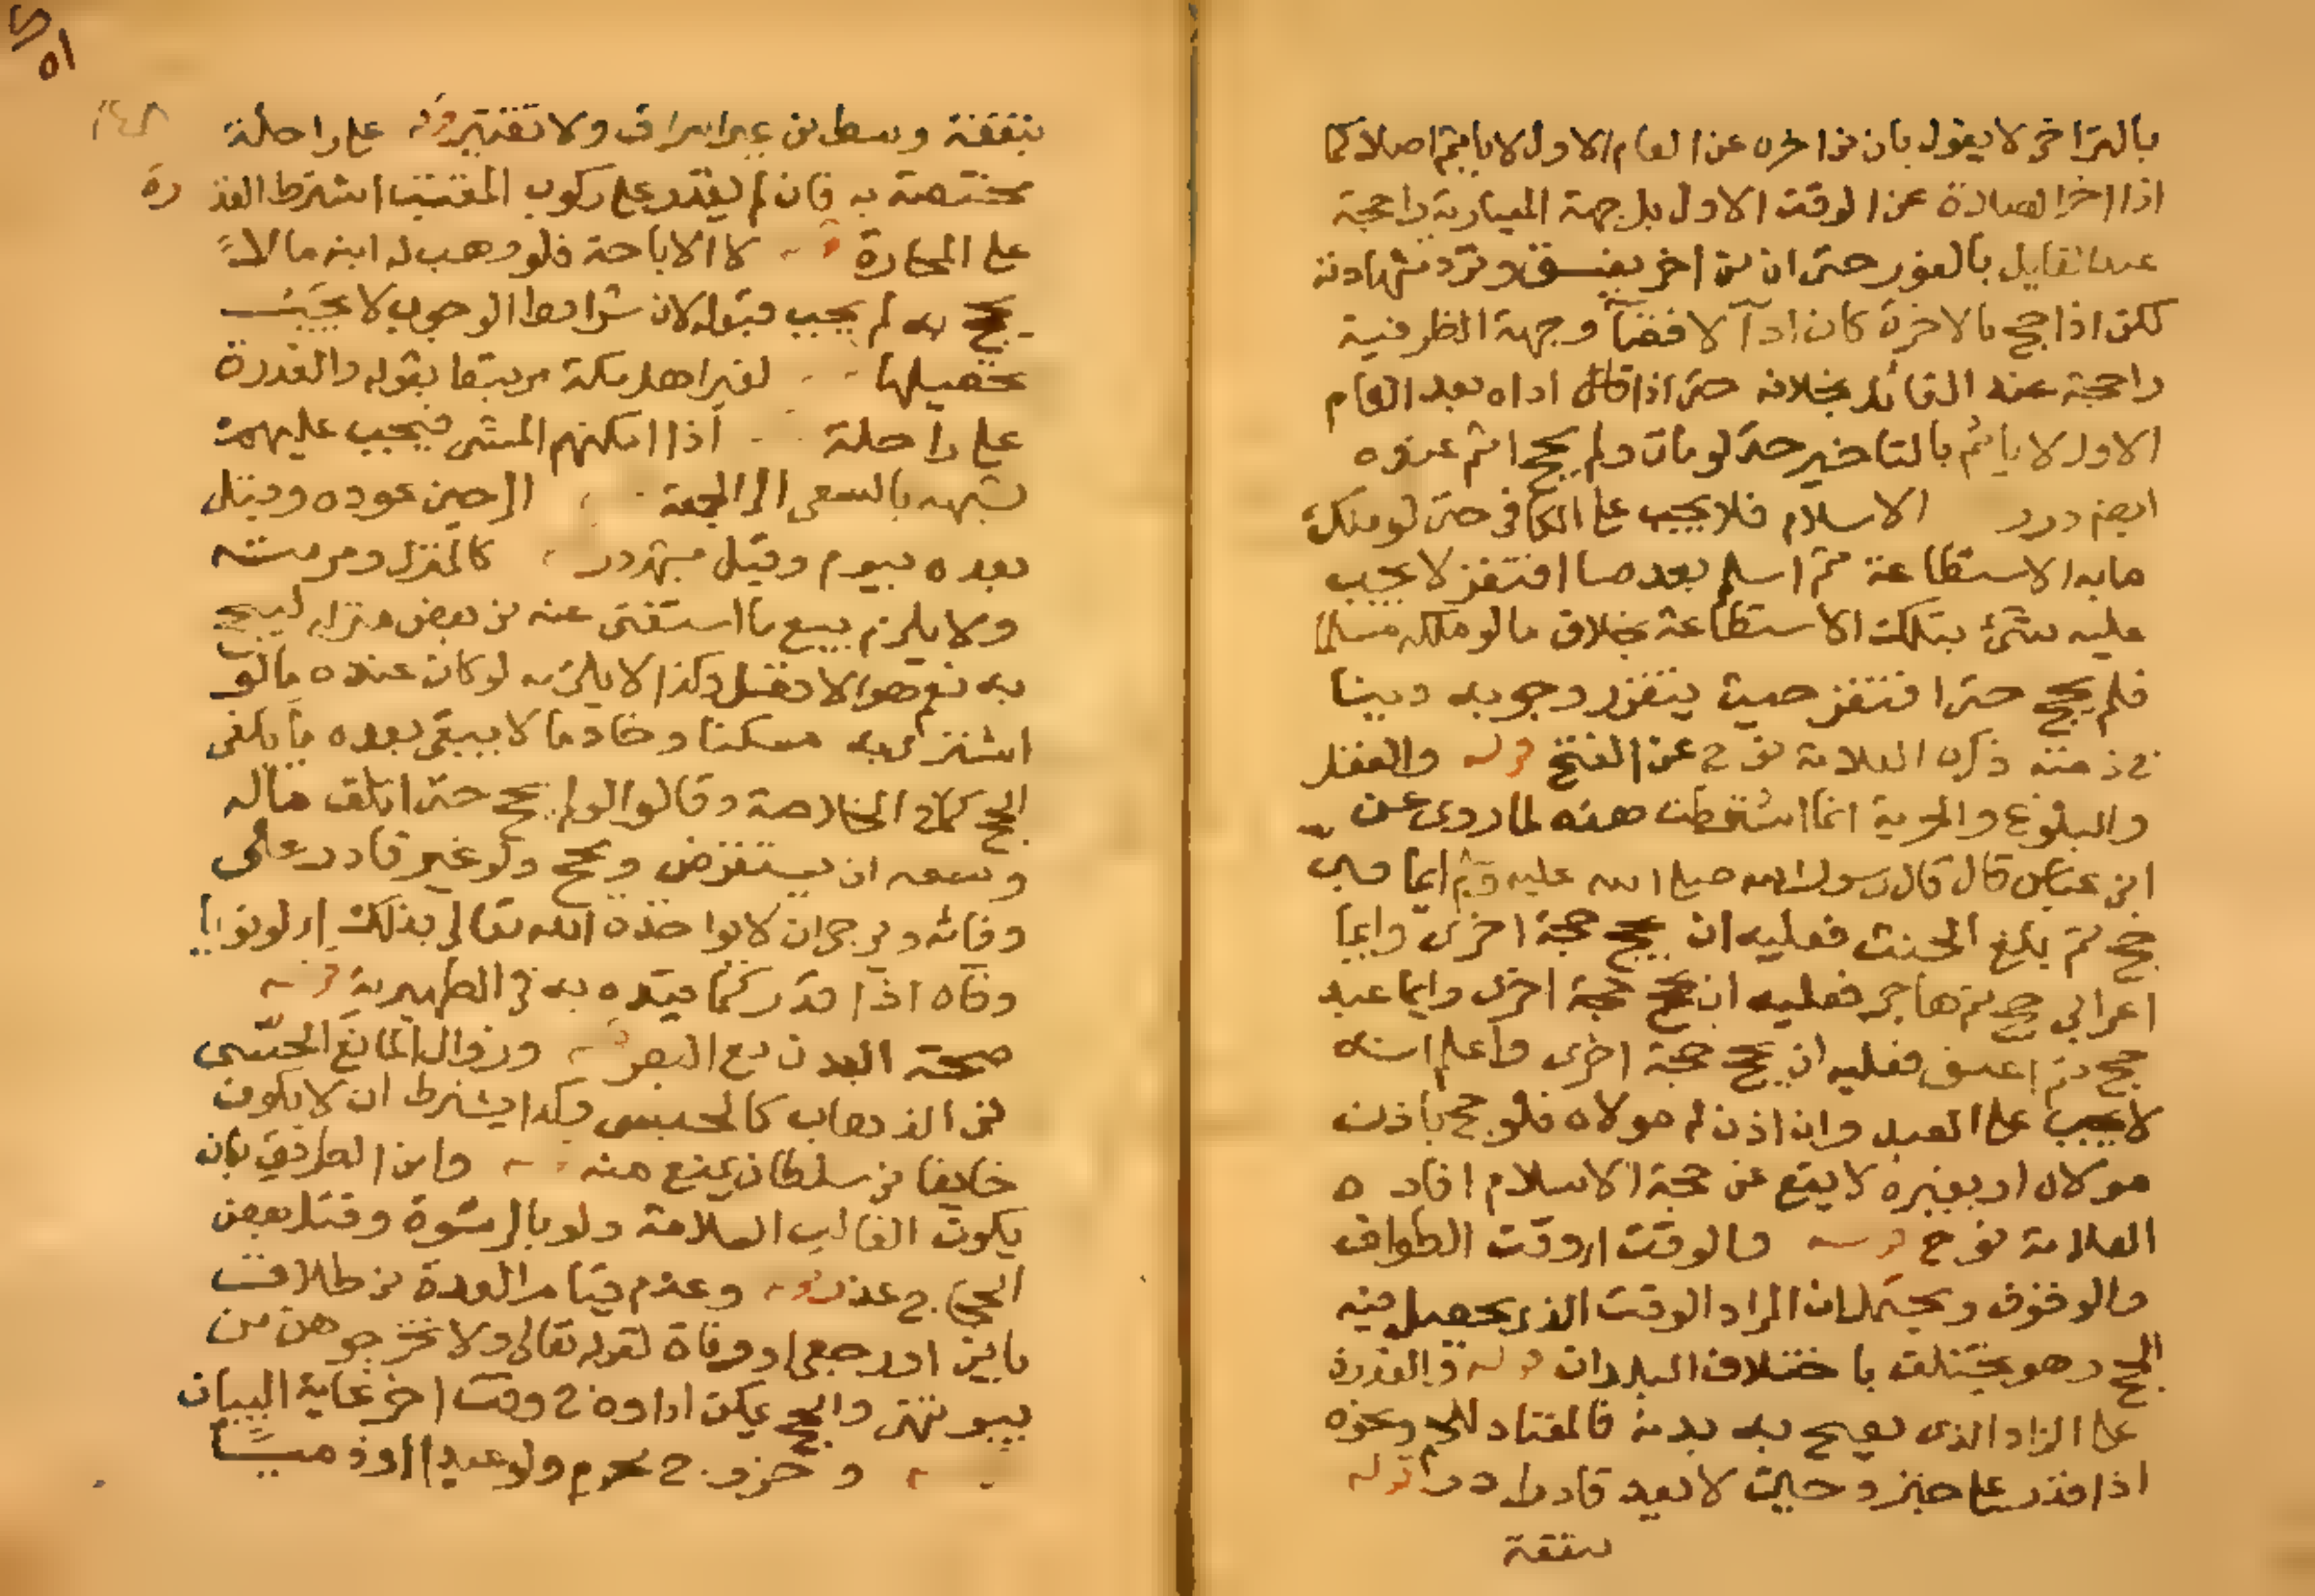 بالتراخي لا يقول بان من اخره عن العام الاول لا ياثم اصلا كما
اذا اخر الصلاة عن الوقت الاول بل جهة المعيارية راجحة
عند القايل بالفور حتى ان من اخر يفسق وترد شهادته
لكن اذا حج بالاخرة كان اداآ لا قضآ وجهة الظرفية
راجحة عند القائل بخلافه حتى اذا اداه بعد العام
الاول لا ياثم بالتاخير حتى لو مات ولم يحج اثم عنده
ايضا درر الاسلام فلا يجب على الكافر حتى لو ملك
ما به الاستطاعة ثم اسلم بعد ما افتقر لا يجب
عليه شئ بتلك الاستطاعة بخلاف ما لو ملكه مسلما
فلم يحج حتى افتقر حيث يتقرر وجوبه دينا
في ذمته ذكره العلامة نوح عن الفتح قوله والعقل
والبلوغ والحرية انما اشترطت هذه لما روى عن
ابن عباس قال قال رسول الله صلى الله عليه وسلم ايما صبي
حج ثم بلغ الحنث فعليه ان يحج حجة اخرى وايما
اعرابي حج ثم هاجر فعليه ان يحج حجة اخرى وايما عبد
حج ثم اعتق فعليه ان يحج حجة اخرى واعلم انه
لا يجب على العبد وان اذن له مولاه فلو حج باذن
مولاه او بغيره لا يقع عن حجة الاسلام افاده
العلامة نوح قوله والوقت اي وقت الطواف
والوقوف ويحتمل ان المراد الوقت الذي يحصل فيه
الحج وهو يختلف باختلاف البلدان قوله والقدرة
على الزاد الذي يصح به بدنه فالمعتاد للحم ونحوه
اذا قدر على خبز وجبن لا يعد قادرا در قوله
بنفقة
بنفقة وسط من غير اسراف ولا تقتير قوله على راحلة
مختصة به فان لم يقدر على ركوب المقتب اشترط القدرة
على المحارة لا الاباحة فلو وهب له ابنه مالاً
يحج به لم يجب قبوله لان شرائط الوجوب لا يجب
تحصيلها لغير اهل مكة مرتبط بقوله والقدرة
على راحلة اذا امكنهم المشي فيجب عليهم
لشبهه بالسعي الى الجمعة الى حين عوده وقيل
بعده بيوم وقيل بشهر در كالمنزل ومرمته
ولا يلزم بيع ما استغنى عنه من بعض منزله ليحج
به نعم هو الافضل وكذا لا يلزمه لو كان عنده ما لو
اشترى به مسكنا وخادما لا يبقى بعده ما يكفي
الحج كما في الخلاصة وقالوا لو لم يحج حتى اتلف ماله
وسعه ان يستقرض ويحج ولو غير قادر على
وفائه ويرجى ان لا يواخذه الله تعالى بذلك اي لو نوا
وفاه اذا قدر كما قيده به في الظهيرية قوله
صحة البدن مع البصر وزوال المانع الحسي
من الذهاب كالحبس وكذا يشترط ان لا يكون
خايفا من سلطان يمنع منه وامن الطريق بان
يكون الغالب السلامة ولو بالرشوة وقتل بعض
الحجاج عذر قوله وعدم قيام العدة من طلاق
باين او رجعي او وفاة لقوله تعالى ولا تخرجوهن من
بيوتهن والحج يمكن اداوه في وقت اخر غاية البيان
وخروج محرم ولو عبدا او ذميا